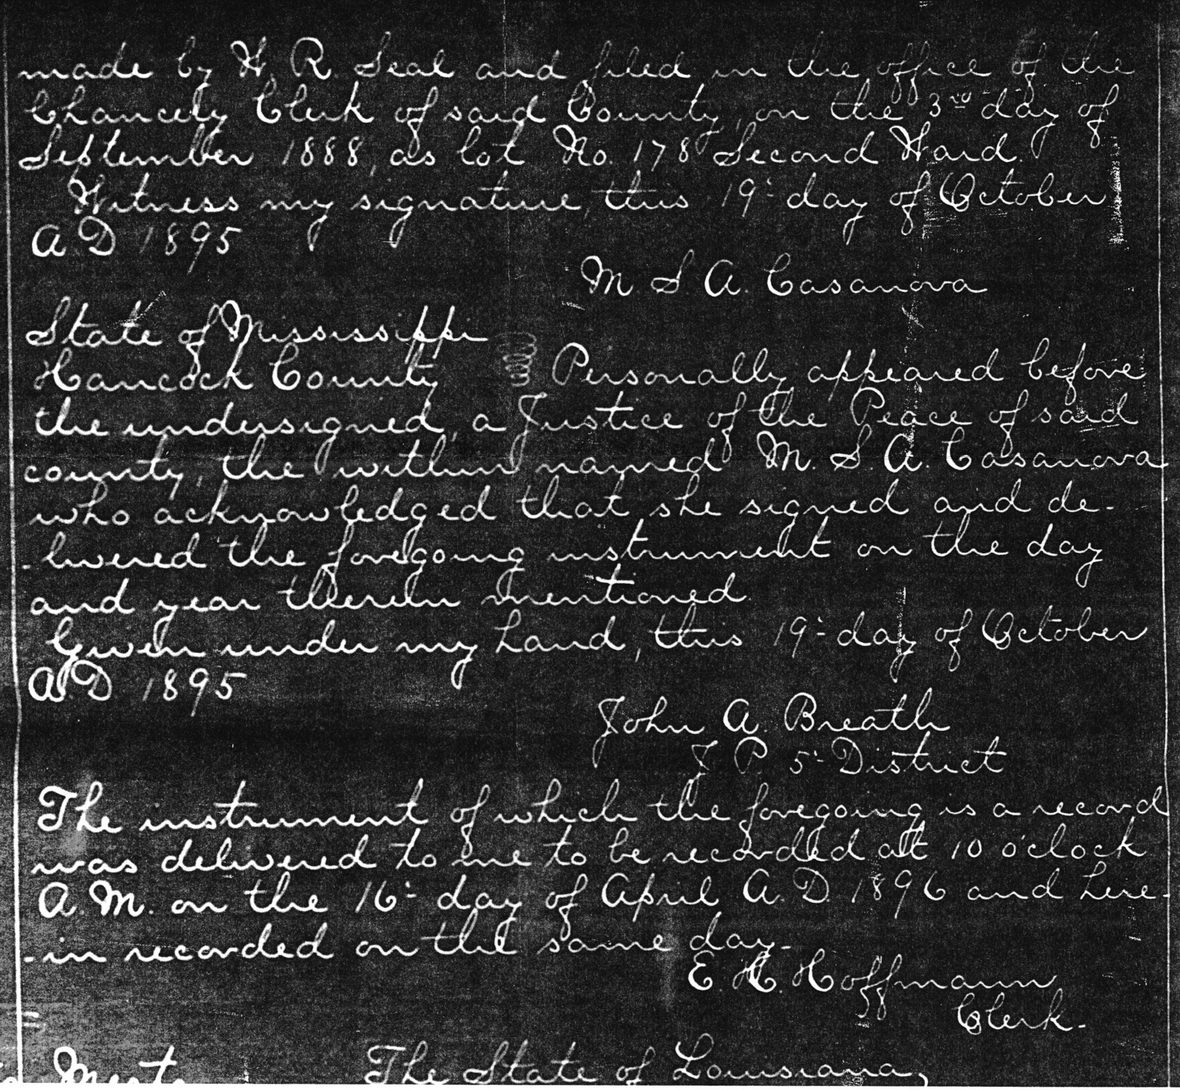 made by H. R. Seal and filed in the office of the
Chancery Clerk of said County, on the 3rd day of
September 1888, as lot No. 178 Second Ward.
Witness my signature, this 19th day of October
A.D 1895
M. S. A. Casanova
State of Mississippi
Hancock County Personally appeared before
the undersigned, a Justice of the Peace of said
county, the within named M. S. A. Casanova
who acknowledged that she signed and de-
-livered the foregoing instrument on the day
and year therein mentioned.
Given under my hand, this 19th day of October
A.D 1895
John A. Breath
J P 5th District
The instrument of which the foregoing is a record
was delivered to me to be recorded at 10 o'clock
A.M. on the 16th day of April A.D. 1896 and here-
-in recorded on the same day-
E. H. Hoffmann
Clerk-
The State of Louisiana,